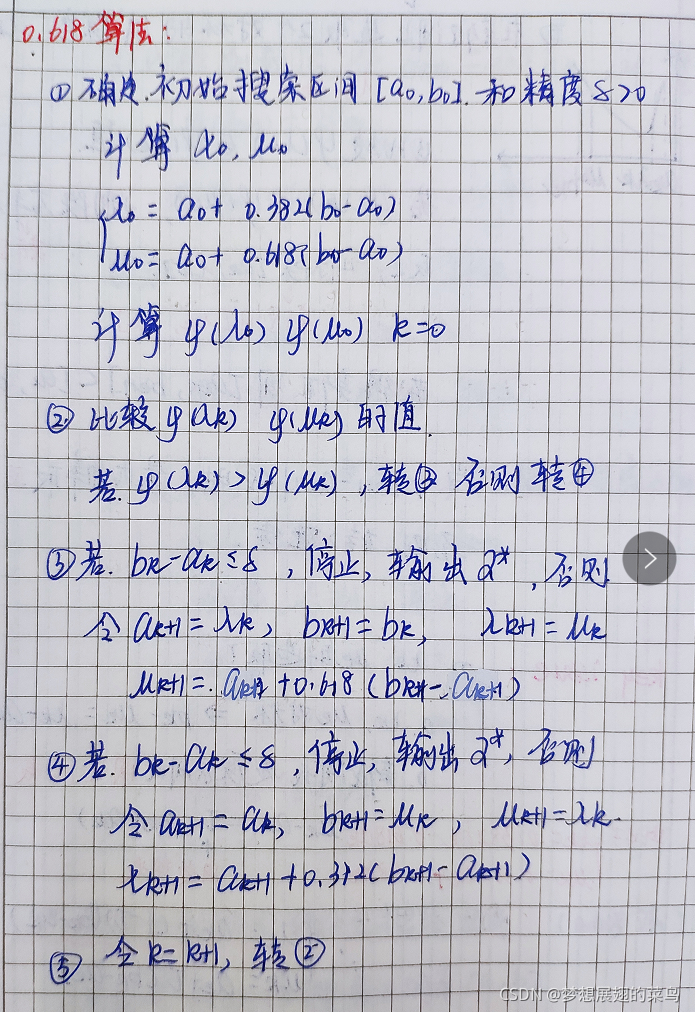 0.618 算法:
① 确定.初始搜索区间 [a₀,b₀]. 和精度 δ>0
计算 λ₀, μ₀
λ₀ = a₀ + 0.382(b₀-a₀)
μ₀ = a₀ + 0.618(b₀-a₀)
计算 φ(λ₀) φ(μ₀) k=0
② 比较 φ(λk) φ(μk) 的值.
若. φ(λk) > φ(μk) , 转③ 否则 转④
③ 若. bk-ak≤δ , 停止, 输出 α* , 否则
令 ak+1 = λk, bk+1 = bk, λk+1 = μk
μk+1 = ak+1 + 0.618 (bk+1 - ak+1)
④ 若. bk-ak ≤ δ , 停止, 输出 α*, 否则
令 ak+1 = ak, bk+1 = μk , μk+1 = λk.
λk+1 = ak+1 + 0.382(bk+1 - ak+1)
⑤ 令 k = k+1, 转②
CSDN @梦想展翅的菜鸟